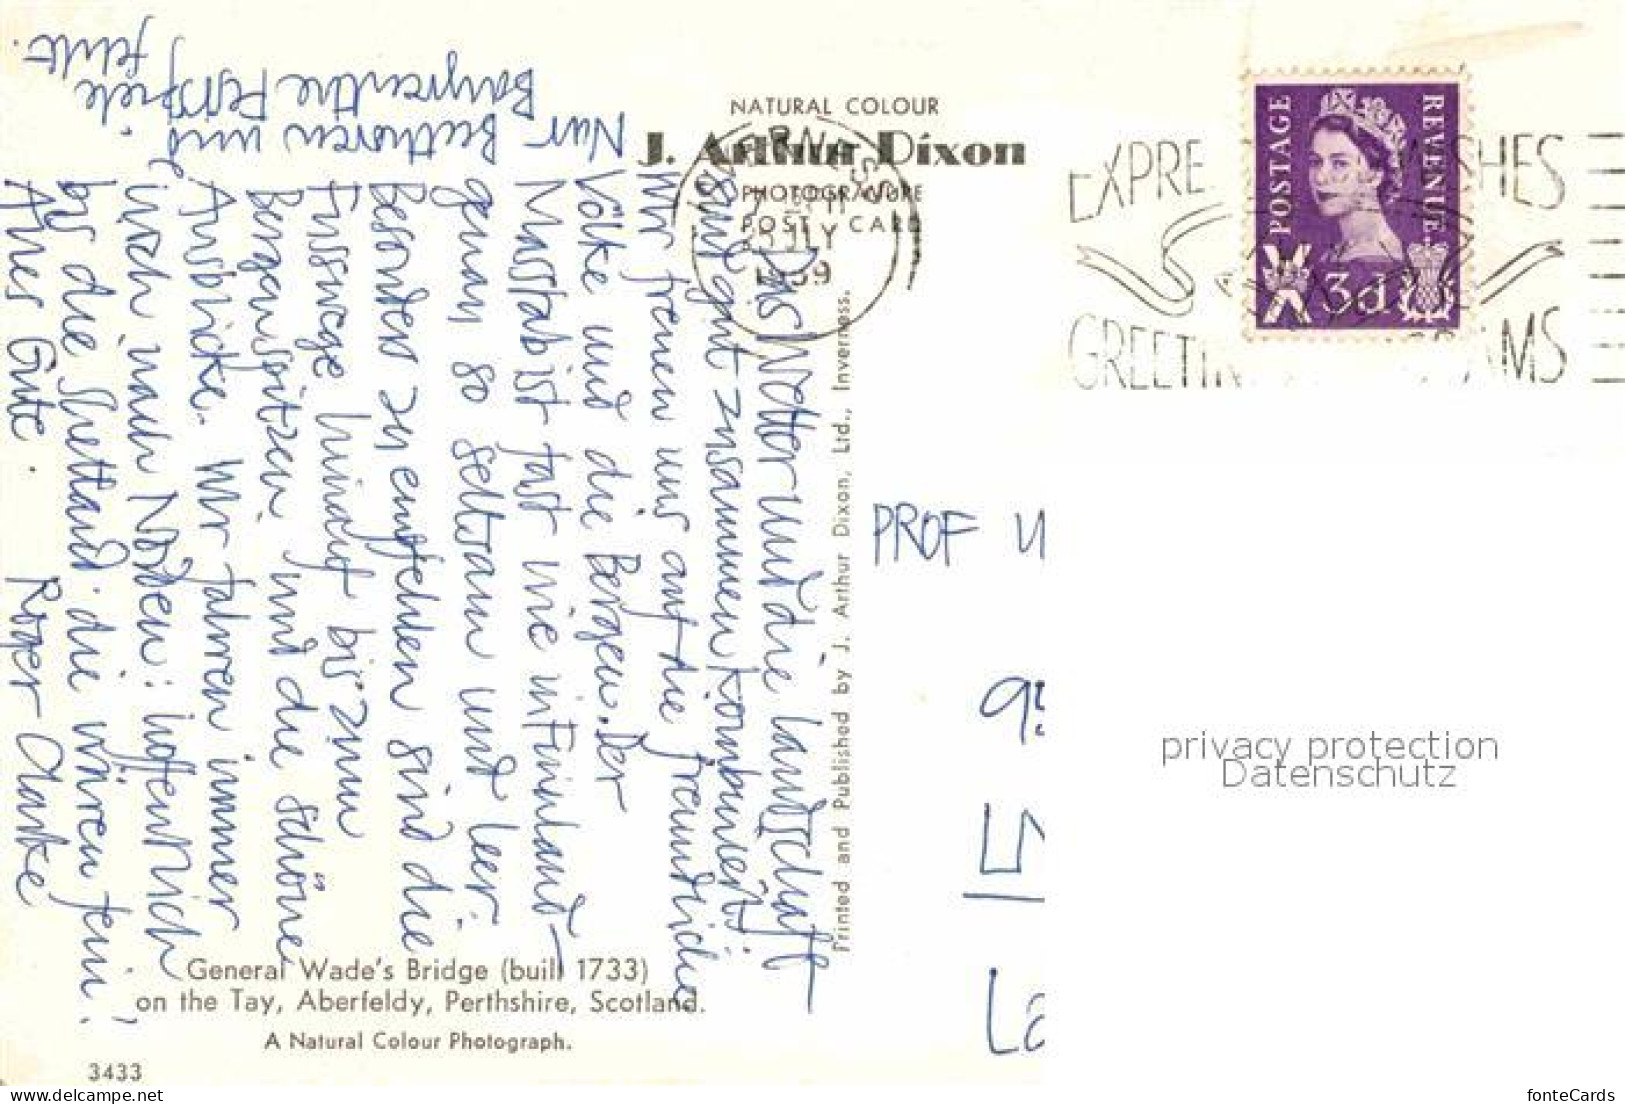 NATURAL COLOUR
J. Arthur Dixon
PHOTOGRAVURE
POST CARD
JLY
1969
EXPRE
SHES
GREETIN
AMS
POSTAGE
REVENUE
3d
Das Wetter und die Landschaft
sind gut zusammen kombiniert:
wir freuen uns auf die freundliche
Völke und die Bergen. Der
Masstab ist fast wie in Finnland –
genau so seltsam und leer.
Besonders zu empfehlen sind die
Fusswege hinauf bis zum
Bergspitzen und die schöne
Ausblicke. Wir fahren immer
noch nach Norden: hoffentlich
bis die Shetland. die wären fein!
Alles Gute.
Roger Clarke
Nur Beethoven und
Bayreuthe Festspiele
fehlt.
Printed and Published by J. Arthur Dixon, Ltd., Inverness.
PROF
General Wade's Bridge (built 1733)
on the Tay, Aberfeldy, Perthshire, Scotland.
A Natural Colour Photograph.
3433
privacy protection
Datenschutz
fonteCards